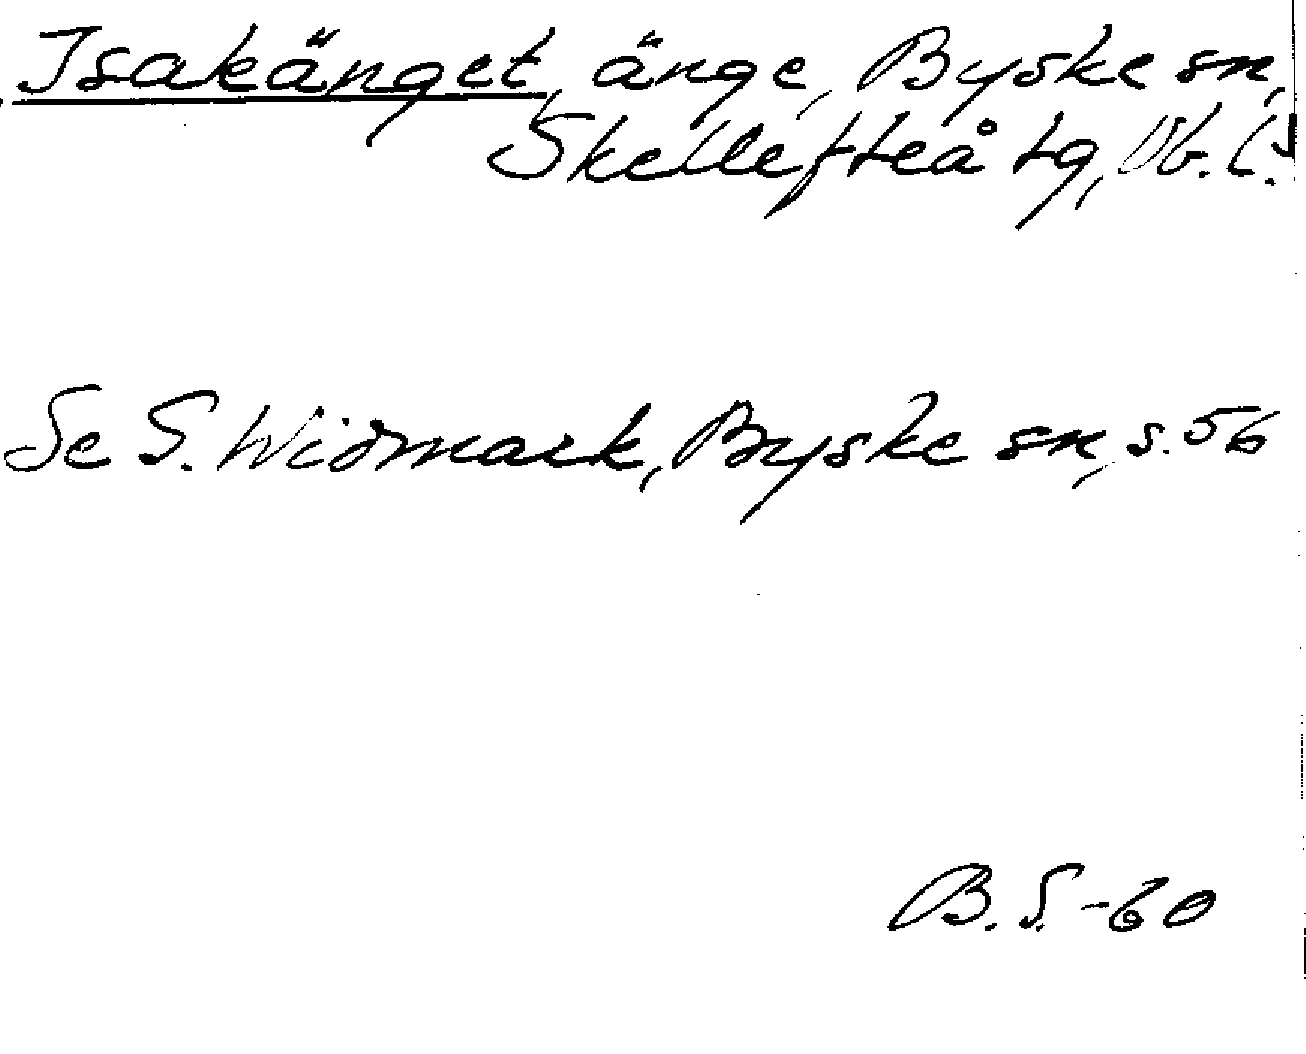 Isakänget, änge, Byske sn,
Skellefteå tg, Vb. l.
Se S. Widmark, Byske sn, s. 56
B. S. -60